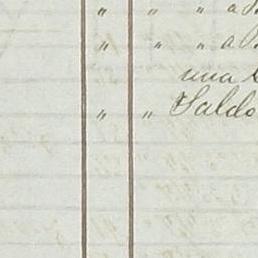 " " " a
" " " a
una
" " Saldo